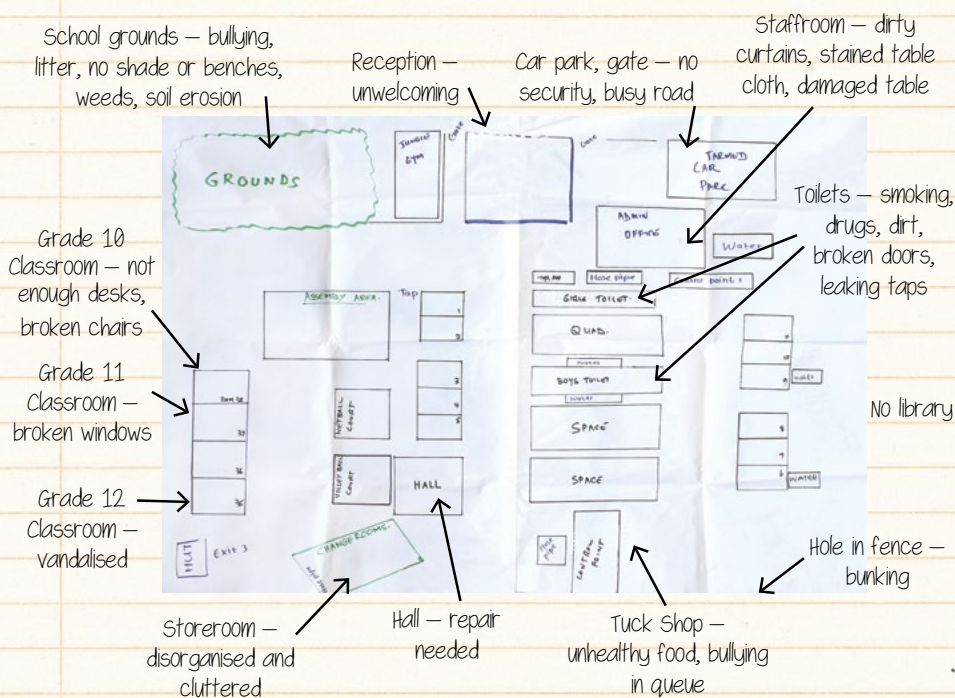 School grounds – bullying,
litter, no shade or benches,
weeds, soil erosion
Reception –
unwelcoming
Car park, gate – no
security, busy road
Staffroom – dirty
curtains, stained table
cloth, damaged table
Toilets – smoking,
drugs, dirt,
broken doors,
leaking taps
Grade 10
Classroom – not
enough desks,
broken chairs
Grade 11
Classroom –
broken windows
Grade 12
Classroom –
vandalised
No library
Hole in fence –
bunking
Storeroom –
disorganised and
cluttered
Hall – repair
needed
Tuck Shop –
unhealthy food, bullying
in queue
GROUNDS
GYM
CAR
PARK
ADMIN
OFFICE
Water
Hose pipe
point 1
GIRLS TOILET
QUAD.
Water
BOYS TOILET
Water
SPACE
SPACE
ASSEMBLY AREA.
Tap
NETBALL
COURT
VOLLEY BALL
COURT
HALL
CHANGEROOMS.
HUT
Exit 3
CONTROL
POINT
37
36
35
8
7
6
9
WATER